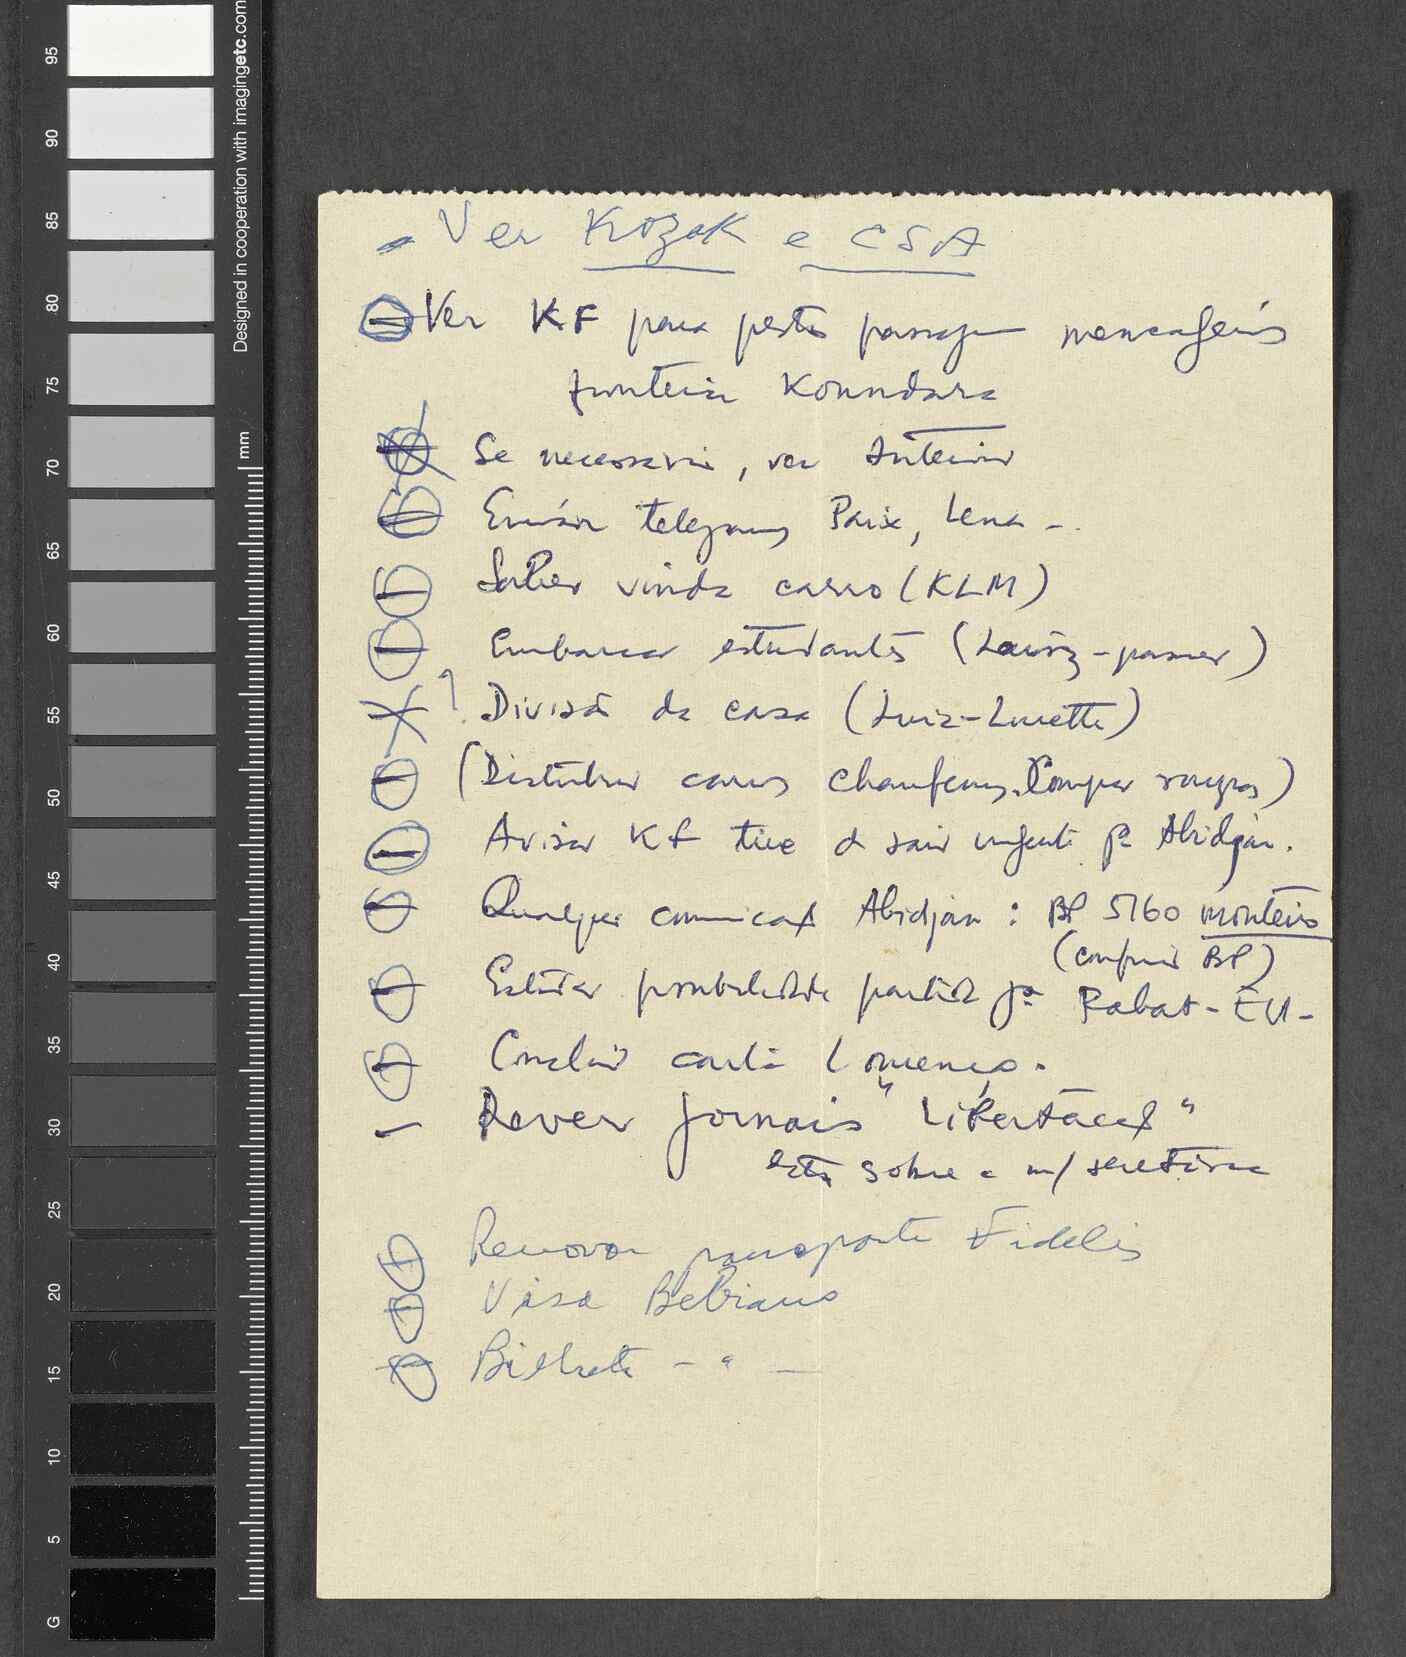 - Ver Kozak e CSA
- Ver KF para peste passagem mensageiros
fronteira Koundara
Se necessario, ver Interior
Enviar telegramas Paix, Lena -.
Saber vinda carro (KLM)
Embarcar estudantes (Luiz - passar)
? Divisão da casa (Luiz - Lucette)
(Distribuir carros chauffeurs. Comprar roupas)
Avisar KF tive d sair urgente pª Abidjan.
Qualquer comunicação Abidjan : BP 5160 Monteiro
(confirmar BP)
Estudar possibilidade partida pª Rabat - EU -
Concluir carta Lourenço.
Rever jornais "Libertação"
está sobre a m/ secretária
Renovar passaporte Fidelis
Visa Bebiano
Bilhete - " -
95
90
85
80
75
70
65
60
55
50
45
40
35
30
25
20
15
10
5
G
Designed in cooperation with imagingetc.com
mm